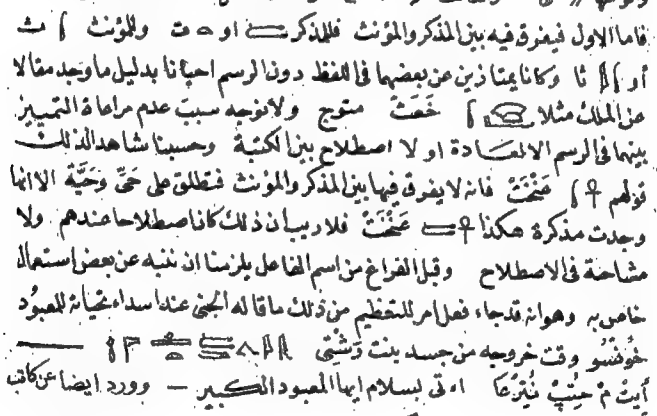 فاما الاول فيفرق فيه بين المذكر والمؤنث فللمذكر او ت وللمؤنث ث
أو ثا وكانا يمتازين عن بعضهما فى اللفظ دون الرسم احيانا بدليل ما وجد مقالا
عن الملك مثلا خَعَتْ متوج ولا نوجه سبب عدم مراعاة التمييز
بينهما فى الرسم الا لعـادة او لا اصطلاح بين الكتبة وحسبنا شاهد الذلك
قولهم عَنْخَتْ فانه لا يفرق فيها بين المذكر والمؤنث فتطلق على حَىّ وَحَيَّة الا انها
وجدت مذكرة هكذا عَنْخَتْ فلا ريب ان ذلك كان اصطلاحا عندهم ولا
مشاحة فى الاصطلاح وقبل الفراغ من اسم الفاعل يلزمنا ان ننبه عن بعض استعمال
خاص به وهو انه قد جاء فعل امر للتعظيم من ذلك ما قاله الجنى عند اسداء تحياته للمعبود
خُونْسُو وقت خروجه من جسد بنت
أيتْ مْ حتپْ اءتى بسلام ايها المعبود الكـبير — وورد ايضا عن كاتب